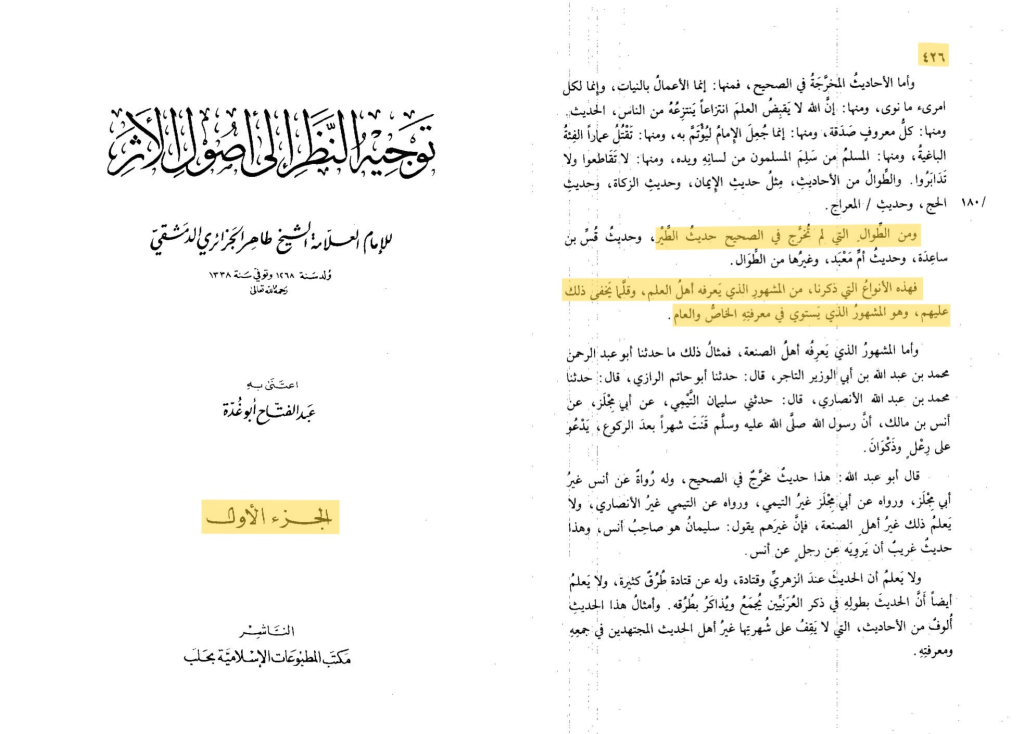 توجيه النظر إلى أصول الأثر
للإمام العلامة الشيخ طاهر الجزائري الدمشقي
ولد سنة ١٢٦٨ وتوفي سنة ١٣٣٨
رحمه الله تعالى
اعتنى به
عبد الفتاح أبو غدة
الجزء الأول
الناشر
مكتب المطبوعات الإسلامية بحلب
٤٢٦
وأما الأحاديثُ المخرَّجَةُ في الصحيح، فمنها: إنما الأعمالُ بالنيات، وإنما لكل
امرىء ما نوى، ومنها: إنَّ الله لا يَقبِضُ العلمَ انتزاعاً يَنتزِعُهُ من الناس، الحديث.
ومنها: كلُّ معروفٍ صَدَقة، ومنها: إنما جُعِلَ الإمامُ ليُؤتَمَّ به، ومنها: تَقْتُلُ عماراً الفِئةُ
الباغيةُ، ومنها: المسلمُ من سَلِمَ المسلمون من لسانِهِ ويده، ومنها: لا تَقاطعوا ولا
تَدابَرُوا. والطِّوالُ من الأحاديثِ، مِثلُ حديثِ الإيمان، وحديثِ الزكاة، وحديثِ
الحج، وحديثِ / المعراج.
١٨٠/
ومن الطِّوالِ التي لم تُخرَّج في الصحيح حديثُ الطَّيْر، وحديثُ قُسِّ بن
ساعِدَة، وحديثُ أمِّ مَعْبَد، وغيرُها من الطِّوَال.
فهذه الأنواعُ التي ذكرنا، من المشهورِ الذي يَعرفه أهلُ العلم، وقلَّما يَخفى ذلك
عليهم، وهو المشهورُ الذي يَستوي في معرفتِهِ الخاصُّ والعام.
وأما المشهورُ الذي يَعرِفُه أهلُ الصنعة، فمثالُ ذلك ما حدثنا أبو عبد الرحمن
محمد بن عبد الله بن أبي الوزير التاجر، قال: حدثنا أبو حاتم الرازي، قال: حدثنا
محمد بن عبد الله الأنصاري، قال: حدثني سليمان التَّيْمِي، عن أبي مِجْلَز، عن
أنس بن مالك، أنَّ رسول الله صلَّى الله عليه وسلَّم قَنَتَ شهراً بعدَ الركوع، يَدْعُو
على رِعْلٍ وذَكْوَانَ.
قال أبو عبد الله: هذا حديثٌ مخرَّجٌ في الصحيح، وله رُواةٌ عن أنس غيرُ
أبي مِجْلَز، ورواه عن أبي مِجْلَز غيرُ التيمي، ورواه عن التيمي غيرُ الأنصاري، ولا
يَعلمُ ذلك غيرُ أهلِ الصنعة، فإنَّ غيرَهم يقول: سليمانُ هو صاحِبُ أنس، وهذا
حديثٌ غريبٌ أن يَرويَه عن رجلٍ عن أنس.
ولا يَعلمُ أن الحديثَ عندَ الزهريِّ وقتادة، وله عن قتادة طُرُقٌ كثيرة، ولا يَعلمُ
أيضاً أنَّ الحديثَ بطولِهِ في ذكر العُرَنيِّين يُجمَعُ ويُذاكَرُ بطُرُقه. وأمثالُ هذا الحديثِ
أُلوفٌ من الأحاديث، التي لا يَقِفُ على شُهرتِها غيرُ أهل الحديث المجتهدين في جمعِهِ
ومعرفتِهِ.